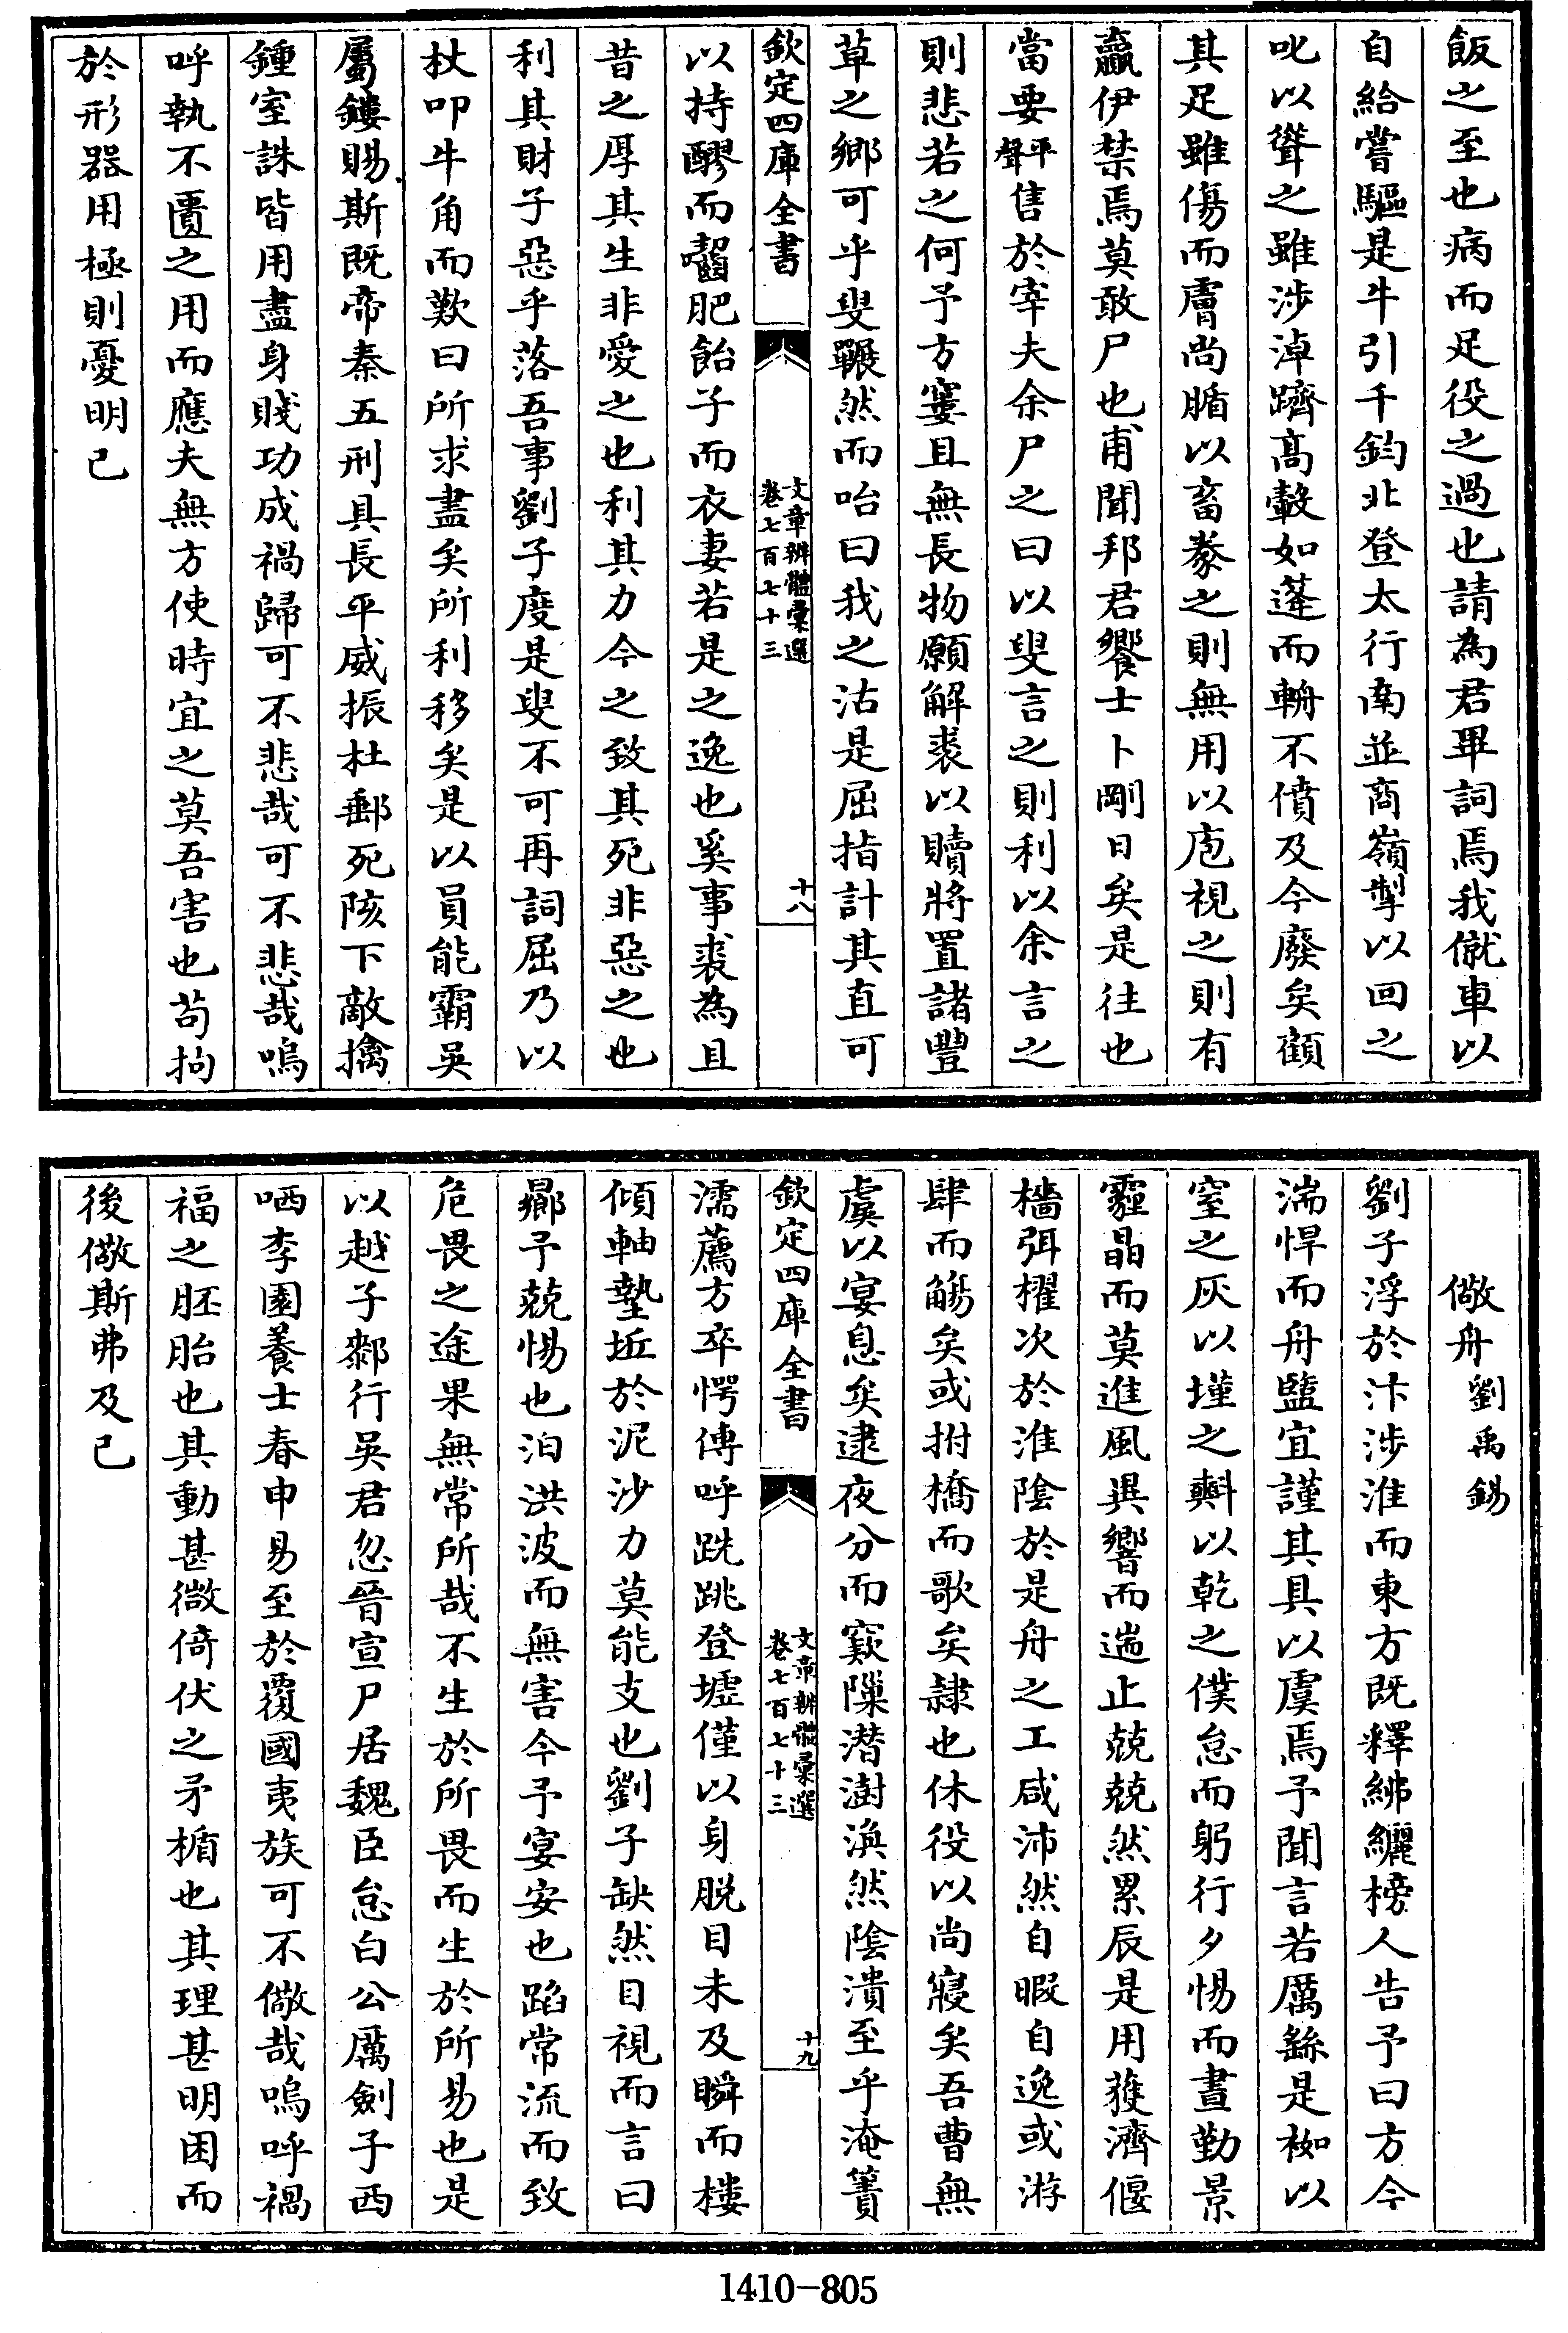 飯之至也病而足役之過也請為君畢詞焉我僦車以
自給嘗驅是牛引千鈞北登太行南並商嶺掣以回之
叱以聳之雖涉淖躋高轂如蓬而輈不僨及今廢矣顧
其足雖傷而膚尚腯以畜豢之則無用以庖視之則有
贏伊禁焉莫敢尸也甫聞邦君饗士卜剛日矣是往也
當要平聲售於宰夫余尸之曰以叟言之則利以余言之
則悲若之何予方窶且無長物願解裘以贖將置諸豐
草之鄉可乎叟囅然而咍曰我之沽是屈指計其直可
欽定四庫全書
文章辨體彙選
卷七百七十三
十八
以持醪而齧肥飴子而衣妻若是之逸也奚事裘為且
昔之厚其生非愛之也利其力今之致其死非惡之也
利其財子惡乎落吾事劉子度是叟不可再詞屈乃以
杖叩牛角而歎曰所求盡矣所利移矣是以員能霸吳
屬鏤賜斯既帝秦五刑具長平威振杜郵死陔下敵擒
鍾室誅皆用盡身賤功成禍歸可不悲哉可不悲哉嗚
呼執不匱之用而應夫無方使時宜之莫吾害也苟拘
於形器用極則憂明已
儆舟劉禹錫
劉子浮於汴涉淮而東方既釋紼纚榜人告予曰方今
湍悍而舟盬宜謹其具以虞焉予聞言若厲繇是袽以
窒之灰以墐之㪺以乾之僕怠而躬行夕惕而晝勤景
霾晶而莫進風異響而遄止兢兢然累辰是用獲濟偃
檣弭櫂次於淮陰於是舟之工咸沛然自暇自逸或游
肆而觴矣或拊橋而歌矣隷也休役以尚寢矣吾曹無
虞以宴息矣逮夜分而窾隟潛澍渙然陰潰至乎淹簀
欽定四庫全書
文章辨體彙選
卷七百七十三
十九
濡薦方卒愕傳呼跣跳登墟僅以身脱目未及瞬而樓
傾軸墊坵於泥沙力莫能支也劉子缺然自視而言曰
曏予兢惕也泊洪波而無害今予宴安也蹈常流而致
危畏之途果無常所哉不生於所畏而生於所易也是
以越子膝行吳君忽晉宣尸居魏臣怠白公厲劍子西
哂李園養士春申易至於覆國夷族可不儆哉嗚呼禍
福之胚胎也其動甚微倚伏之矛楯也其理甚明困而
後儆斯弗及已
1410—805